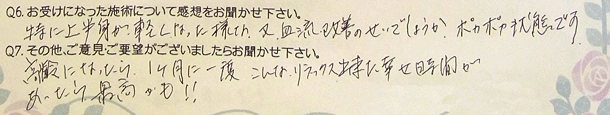 Q6. お受けになった施術について感想をお聞かせ下さい。
特に上半身が軽くなった様な、又、血流改善のせいでしょうか、ポカポカ状態です
Q7. その他、ご意見・ご要望がございましたらお聞かせ下さい。
高齢になったら、1ヶ月に一度 こんなリラックス出来た幸せ時間が
あったら最高かも!!